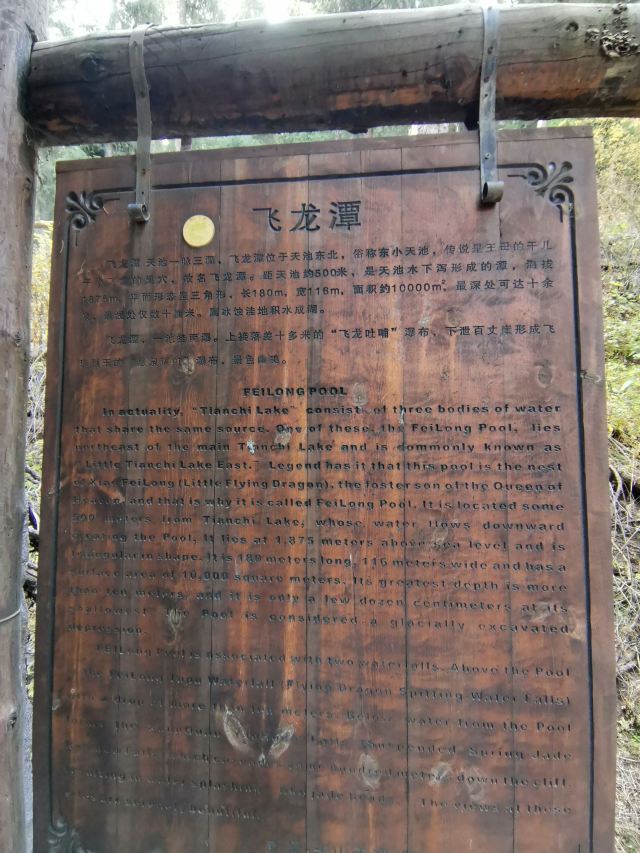 飞龙潭
飞龙潭 天池一脉三潭，飞龙潭位于天池东北，俗称东小天池，传说是王母的干儿
龙穴，故名飞龙潭。距天池约500米，是天池水下泻形成的潭，海拔
1875m，平面形态呈三角形，长180m，宽116m，面积约10000m²，最深处可达十余
最浅处仅数十厘米。属冰蚀洼地积水成湖。
飞龙潭，一池挂两瀑。上接落差十多米的“飞龙吐哺”瀑布，下泄百丈崖形成飞
瀑布，景色幽美。
FEILONG POOL
In actuality, "Tianchi Lake" consists of three bodies of water
that share the same source. One of these, the FeiLong Pool, lies
northeast of the main Tianchi Lake and is commonly known as
"Little Tianchi Lake East." Legend has it that this pool is the nest
of Xiao FeiLong (Little Flying Dragon), the foster son of the Queen of
Heaven, and that is why it is called FeiLong Pool. It is located some
500 meters from Tianchi Lake, whose water flows downward
creating the Pool. It lies at 1,875 meters above sea level and is
triangular in shape. It is 180 meters long, 116 meters wide and has a
surface area of 10,000 square meters. Its greatest depth is more
than ten meters, and it is only a few dozen centimeters at its
shallowest. The Pool is considered a glacially excavated
depression.
FEILong Pool is associated with two waterfalls. Above the Pool
the FeiLong Tupu Waterfall (Flying Dragon Spitting Water Falls)
a drop of more than ten meters. Below, water from the Pool
forms the XuanQuan Falls (Suspended Spring Jade
some hundred meters down the cliff,
resulting in water splashing like jade beads. The views at these
beautiful.